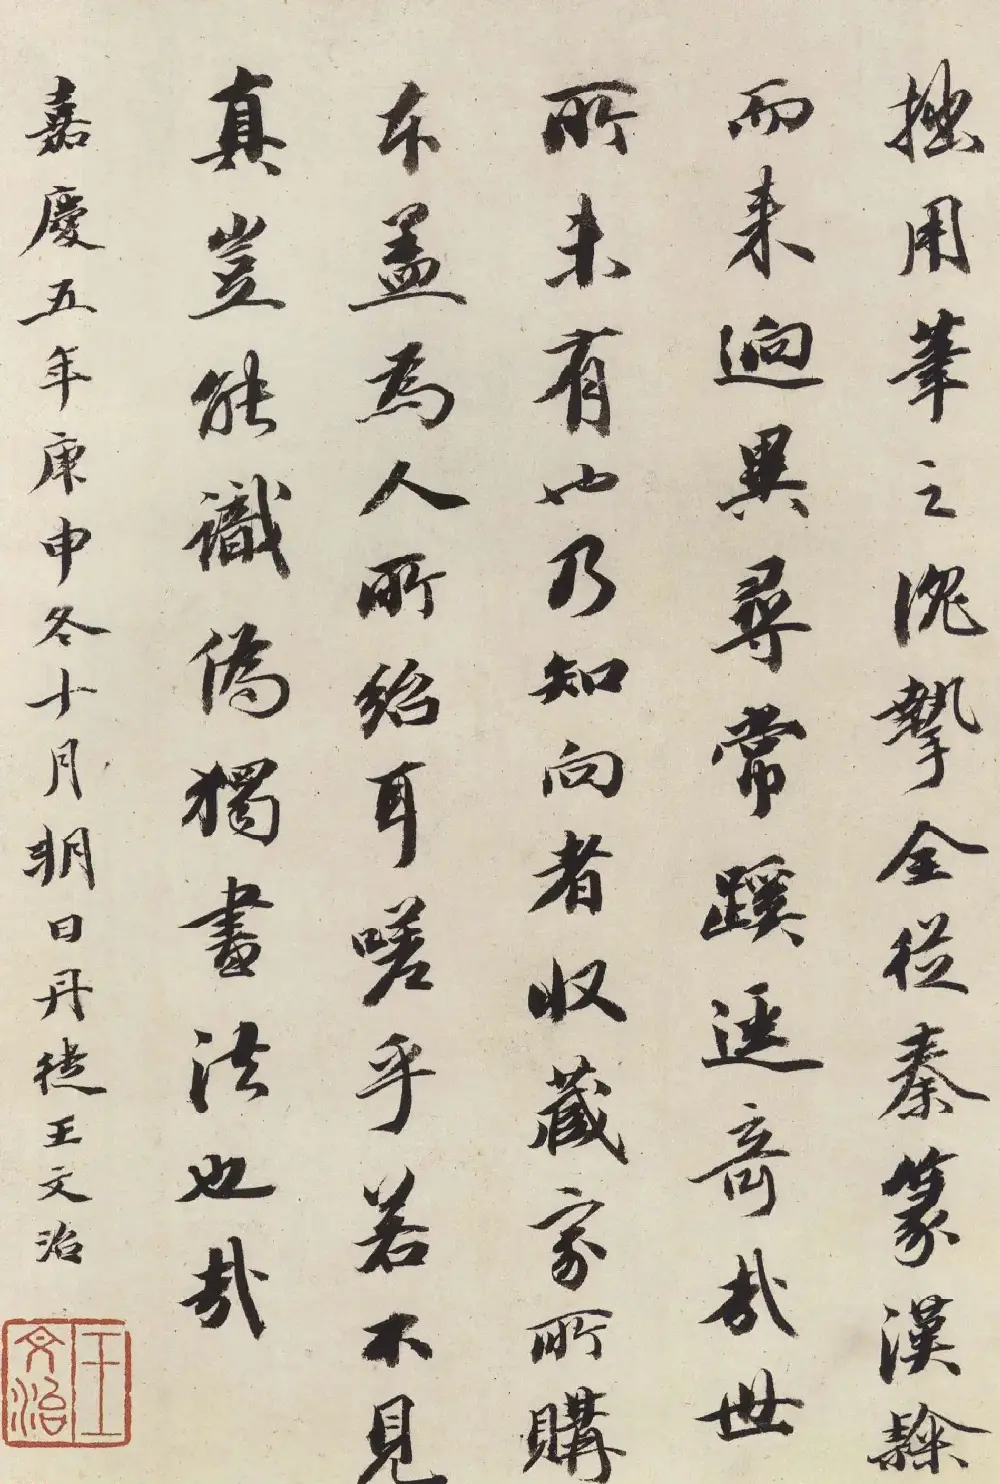 拙用筆之沈摯全從秦篆漢隸
而来迥異尋常蹊逕奇哉世
所未有也乃知向者收藏家所購
本蓋為人所紿耳嗟乎若不見
真豈能識偽獨畫法也哉
嘉慶五年庚申冬十月朔日丹徒王文治
王文治